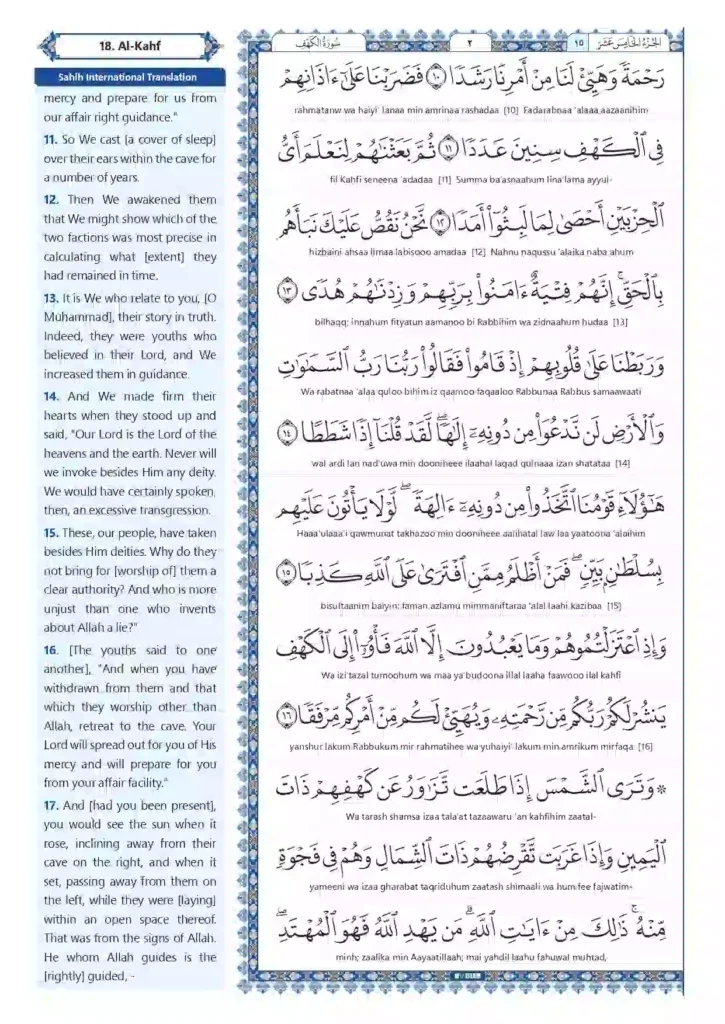 18. Al-Kahf
Sahih International Translation
mercy and prepare for us from
our affair right guidance."
11. So We cast [a cover of sleep]
over their ears within the cave for
a number of years.
12. Then We awakened them
that We might show which of the
two factions was most precise in
calculating what [extent] they
had remained in time.
13. It is We who relate to you, [O
Muhammad], their story in truth.
Indeed, they were youths who
believed in their Lord, and We
increased them in guidance.
14. And We made firm their
hearts when they stood up and
said, "Our Lord is the Lord of the
heavens and the earth. Never will
we invoke besides Him any deity.
We would have certainly spoken,
then, an excessive transgression.
15. These, our people, have taken
besides Him deities. Why do they
not bring for [worship of] them a
clear authority? And who is more
unjust than one who invents
about Allah a lie?"
16. [The youths said to one
another], "And when you have
withdrawn from them and that
which they worship other than
Allah, retreat to the cave. Your
Lord will spread out for you of His
mercy and will prepare for you
from your affair facility."
17. And [had you been present],
you would see the sun when it
rose, inclining away from their
cave on the right, and when it
set, passing away from them on
the left, while they were [laying]
within an open space thereof.
That was from the signs of Allah.
He whom Allah guides is the
[rightly] guided, -
الجزء الخامس عشر ١٥ ٢ سورة الكهف
رَحْمَةً وَهَيِّئْ لَنَا مِنْ أَمْرِنَا رَشَدًا ١٠ فَضَرَبْنَا عَلَىٰٓ ءَاذَانِهِمْ
rahmatanw wa haiyi' lanaa min amrinaa rashadaa [10] Fadarabnaa 'alaaa aazaanihim
فِى ٱلْكَهْفِ سِنِينَ عَدَدًا ١١ ثُمَّ بَعَثْنَٰهُمْ لِنَعْلَمَ أَىُّ
fil Kahfi seneena 'adadaa [11] Summa ba'asnaahum lina'lama ayyul-
ٱلْحِزْبَيْنِ أَحْصَىٰ لِمَا لَبِثُوٓا۟ أَمَدًا ١٢ نَّحْنُ نَقُصُّ عَلَيْكَ نَبَأَهُم
hizbaini ahsaa limaa labisooo amadaa [12] Nahnu naqussu 'alaika naba ahum
بِٱلْحَقِّ ۚ إِنَّهُمْ فِتْيَةٌ ءَامَنُوا۟ بِرَبِّهِمْ وَزِدْنَٰهُمْ هُدًى ١٣
bilhaqq; innahum fityatun aamanoo bi Rabbihim wa zidnaahum hudaa [13]
وَرَبَطْنَا عَلَىٰ قُلُوبِهِمْ إِذْ قَامُوا۟ فَقَالُوا۟ رَبُّنَا رَبُّ ٱلسَّمَٰوَٰتِ
Wa rabatnaa 'alaa quloo bihim iz qaamoo faqaaloo Rabbunaa Rabbus samaawaati
وَٱلْأَرْضِ لَن نَّدْعُوَا۟ مِن دُونِهِۦٓ إِلَٰهًا ۖ لَّقَدْ قُلْنَآ إِذًا شَطَطًا ١٤
wal ardi lan nad'uwa min dooniheee ilaahal laqad qulnaaa izan shatataa [14]
هَٰٓؤُلَآءِ قَوْمُنَا ٱتَّخَذُوا۟ مِن دُونِهِۦٓ ءَالِهَةً ۖ لَّوْلَا يَأْتُونَ عَلَيْهِم
Haaa'ulaaa'i qawmunat takhazoo min dooniheee aalihatal law laa yaatoona 'alaihim
بِسُلْطَٰنٍۭ بَيِّنٍ ۖ فَمَنْ أَظْلَمُ مِمَّنِ ٱفْتَرَىٰ عَلَى ٱللَّهِ كَذِبًا ١٥
bisultaanim baiyin; faman azlamu mimmaniftaraa 'alal laahi kazibaa [15]
وَإِذِ ٱعْتَزَلْتُمُوهُمْ وَمَا يَعْبُدُونَ إِلَّا ٱللَّهَ فَأْوُۥٓا۟ إِلَى ٱلْكَهْفِ
Wa izi' tazal tumoohum wa maa ya'budoona illal laaha faawooo ilal kahfi
يَنشُرْ لَكُمْ رَبُّكُم مِّن رَّحْمَتِهِۦ وَيُهَيِّئْ لَكُم مِّنْ أَمْرِكُم مِّرْفَقًا ١٦
yanshur lakum Rabbukum mir rahmatihee wa yuhaiyi' lakum min amrikum mirfaqa [16]
۞ وَتَرَى ٱلشَّمْسَ إِذَا طَلَعَت تَّزَٰوَرُ عَن كَهْفِهِمْ ذَاتَ
Wa tarash shamsa izaa tala'at tazaawaru 'an kahfihim zaatal-
ٱلْيَمِينِ وَإِذَا غَرَبَت تَّقْرِضُهُمْ ذَاتَ ٱلشِّمَالِ وَهُمْ فِى فَجْوَةٍ
yameeni wa izaa gharabat taqriduhum zaatash shimaali wa hum fee fajwatim-
مِّنْهُ ۚ ذَٰلِكَ مِنْ ءَايَٰتِ ٱللَّهِ ۗ مَن يَهْدِ ٱللَّهُ فَهُوَ ٱلْمُهْتَدِ ۖ
minh; zaalika min Aayaatillaah; mai yahdil laahu fahuwal muhtad,